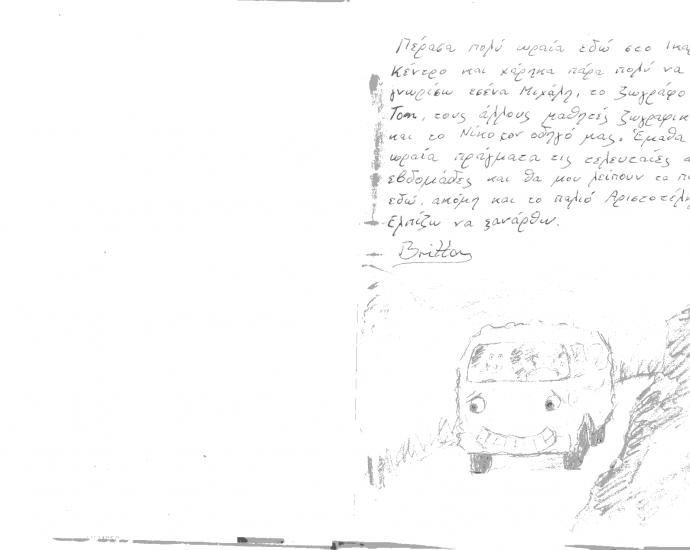 Πέρασα πολύ ωραία εδώ στο
Κέντρο και χάρηκα πάρα πολύ να
γνωρίσω εσένα Μιχάλη, το ζωγράφο
Tom, τους άλλους μαθητές
και το Νίκο τον οδηγό μας. Έμαθα
ωραία πράγματα τις τελευταίες
εβδομάδες και θα μου λείπουν τα
εδώ, ακόμη και το παλιό
Ελπίζω να ξανάρθω.